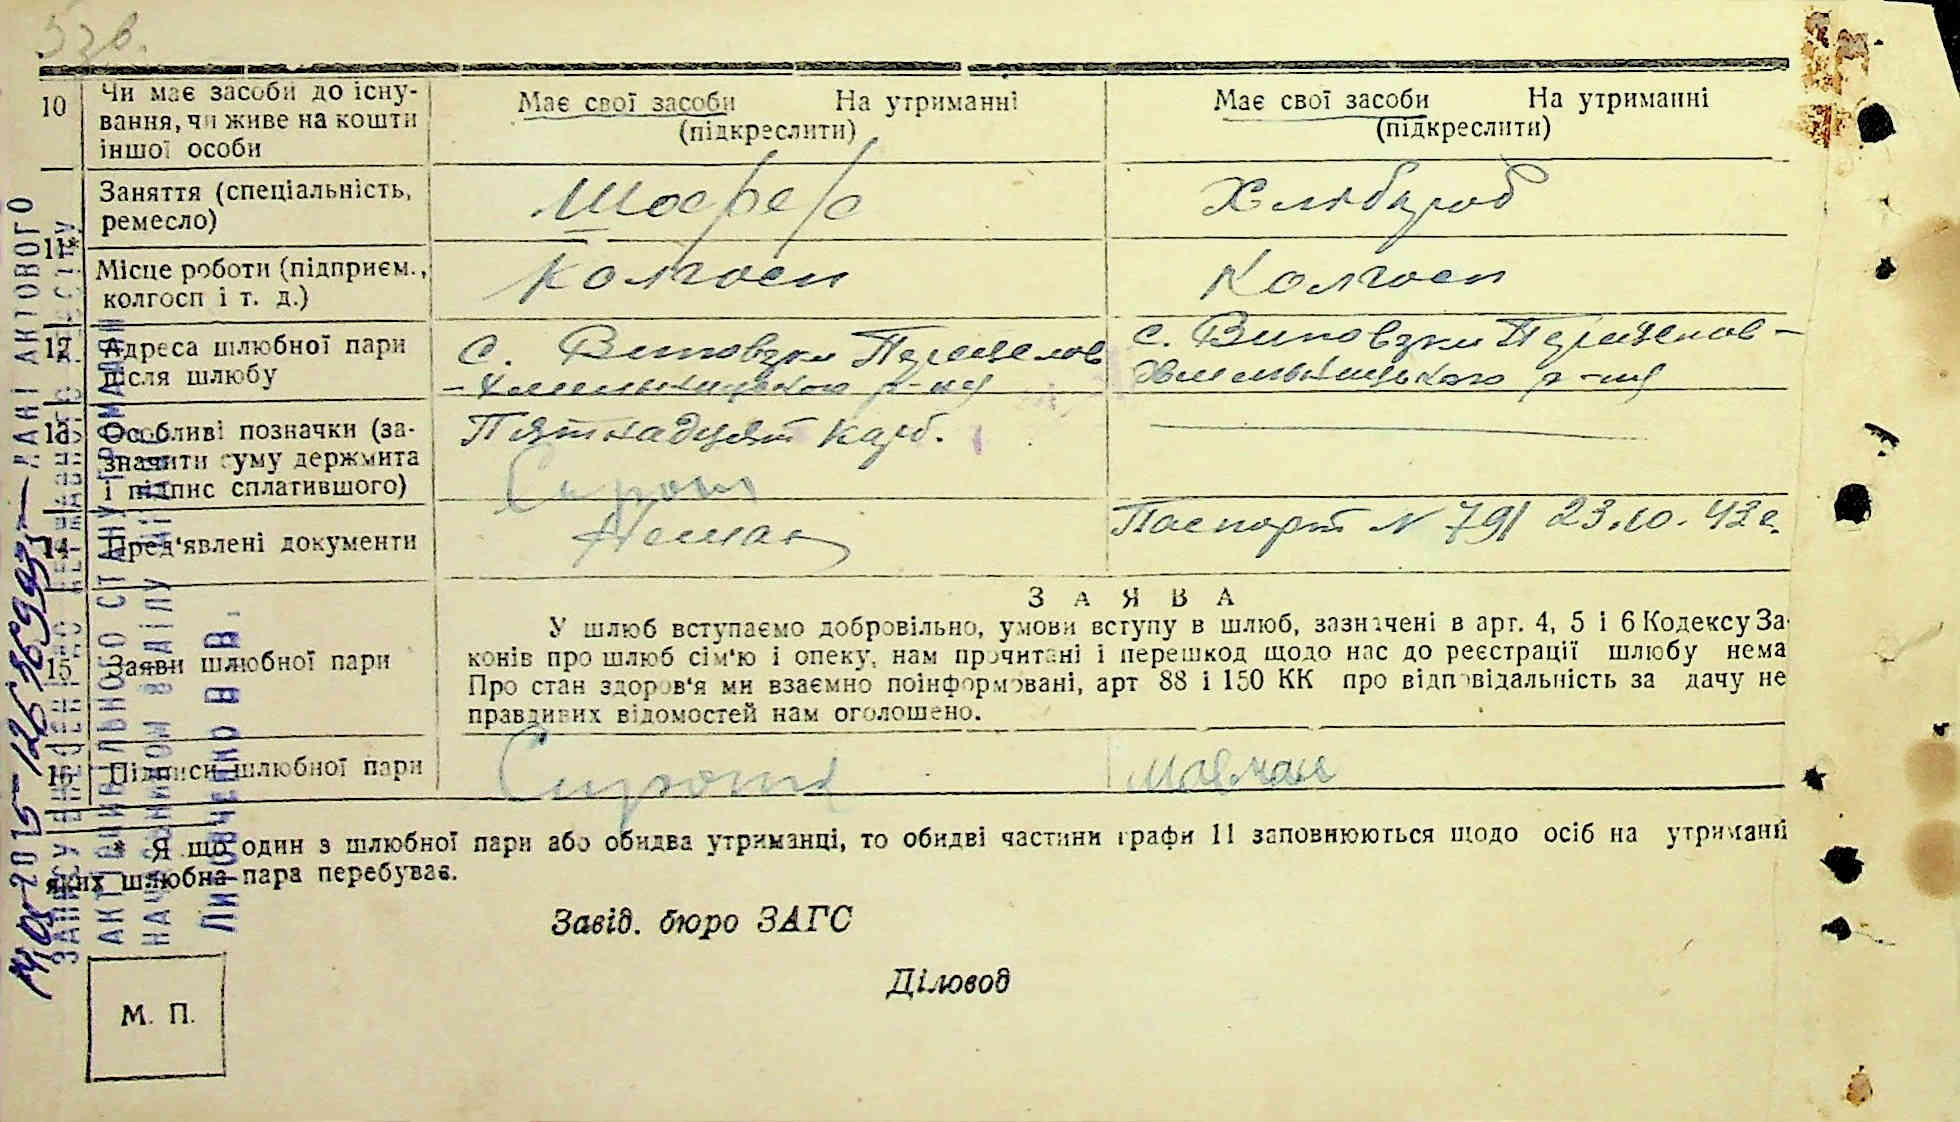 5зв.
10 Чи має засоби до існу-
вання, чи живе на кошти
іншої особи
Має свої засоби На утриманні
(підкреслити)
Має свої засоби На утриманні
(підкреслити)
11*
Заняття (спеціальність,
ремесло)
Шофер
Хлібороб
Місце роботи (підприєм.,
колгосп і т. д.)
Колгосп
Колгосп
12 Адреса шлюбної пари
після шлюбу
с. Виповзки Переяслов
-Хмельницького р-ну
с. Виповзки Переяслов-
Хмельницького р-ну
13 Особливі позначки (за-
значити суму держмита
і підпис сплатившого)
Пятнадцят карб.
Сирота
14 Пред'явлені документи
Немає
Паспорт № 791 23.10.43г.
15 Заяви шлюбної пари
ЗАЯВА
У шлюб вступаємо добровільно, умови вступу в шлюб, зазначені в арт. 4, 5 і 6 Кодексу За-
конів про шлюб сім'ю і опеку, нам прочитані і перешкод щодо нас до реєстрації шлюбу нема
Про стан здоров'я ми взаємно поінформовані, арт 88 і 150 КК про відповідальність за дачу не
правдивих відомостей нам оголошено.
16 Підписи шлюбної пари
Сирота
Мовчан
* Я що один з шлюбної пари або обидва утриманці, то обидві частини графи 11 заповнюються щодо осіб на утриманні
яких шлюбна пара перебуває.
Завід. бюро ЗАГС
Діловод
М. П.
ДАНІ АКТОВОГО
ЗАПИСУ ВНЕСЕНІ ДО ДЕРЖАВНОГО РЕЄСТРУ
АКТІВ ЦИВІЛЬНОГО СТАНУ ГРОМАДЯН
НАЧАЛЬНИКОМ ВІДДІЛУ